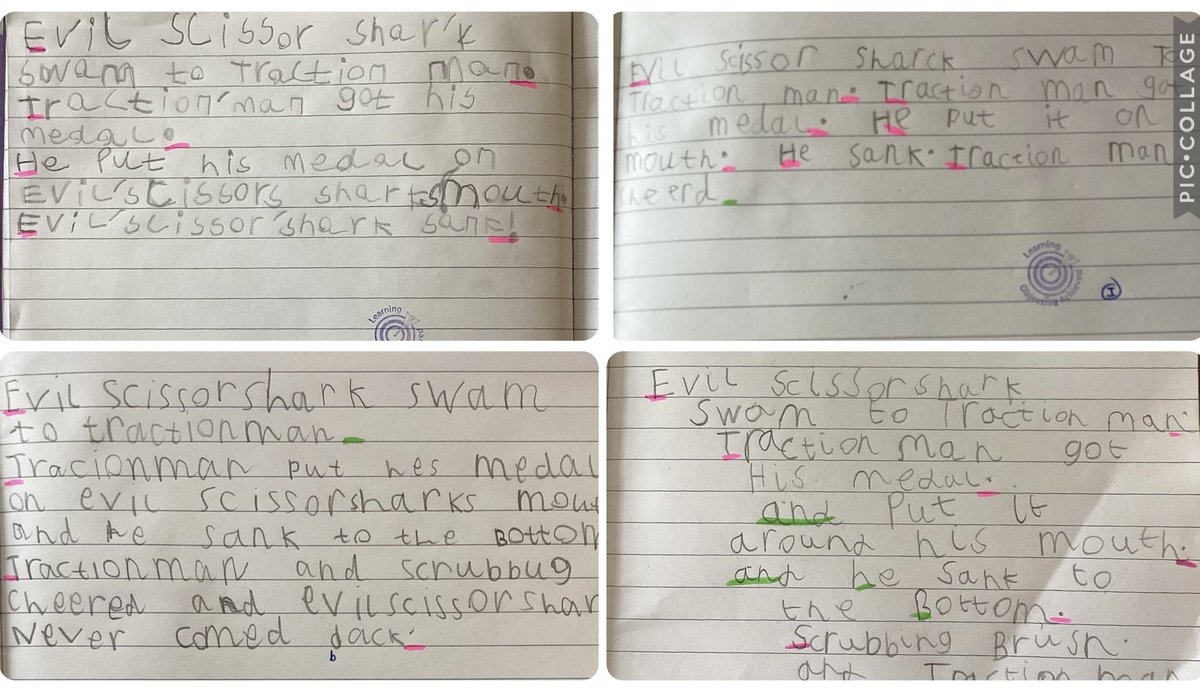 Evil scissor shark
swam to Traction Man.
Traction man got his
medal.
He put his medal on
Evil scissors sharks mouth.
Evil scissor shark sank!
Learning
Evil scissor sharck swam to
Traction man. Traction man got
his medal. He put it on
mouth. He sank. Traction man
cheerd
Learning
Objective Achieved
I
PIC•COLLAGE
Evil scissorshark swam
to tractionman
Tracionman put hes medal
on evil scissorsharks mout
and he sank to the Botton
Tractionman and scrubbug
cheered and evilscissorshar
Never comed dack.
b
Evil scissorshark
swam to Traction man.
Traction man got
His medal.
and put it
around his mouth.
and he sank to
the Bottom.
Scrubbing Brush.
and Traction man